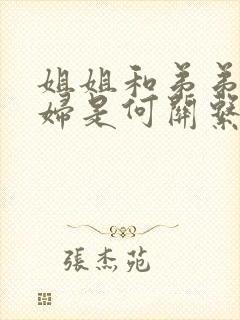 姐姐和弟弟
婦是何關繫
張杰苑